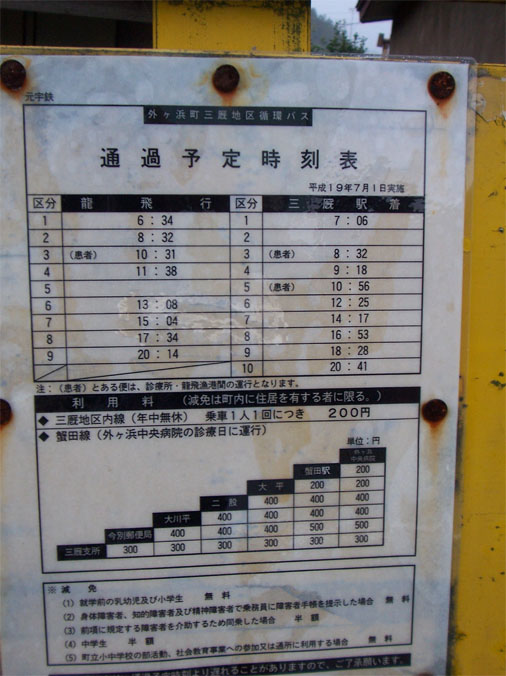 元宇鉄
外ヶ浜町三厩地区循環バス
通過予定時刻表
平成19年7月1日実施
区分 龍飛行 区分 三厩駅着
1 6:34 1 7:06
2 8:32 2
3 (患者) 10:31 3 (患者) 8:32
4 11:38 4 9:18
5 5 (患者) 10:56
6 13:08 6 12:25
7 15:04 7 14:17
8 17:34 8 16:53
9 20:14 9 18:28
10 20:41
注:(患者)とある便は、診療所・龍飛漁港間の運行となります。
利用料 (減免は町内に住居を有する者に限る。)
◆ 三厩地区内線(年中無休) 乗車1人1回につき 200円
◆ 蟹田線(外ヶ浜中央病院の診療日に運行)
単位:円
外ヶ浜中央病院
蟹田駅 200
大平 200 200
二股 400 400 400
大川平 400 400 400 400
今別郵便局 400 400 400 500 500
三厩支所 300 300 300 300 300 300
※減免
(1) 就学前の乳幼児及び小学生 無料
(2) 身体障害者、知的障害者及び精神障害者で乗務員に障害者手帳を提示した場合 無料
(3) 前項に規定する障害者を介助するため同乗した場合 半額
(4) 中学生 半額
(5) 町立小中学校の部活動、社会教育事業への参加又は通所に利用する場合 無料
予定時刻より遅れることがありますので、ご了承願います。